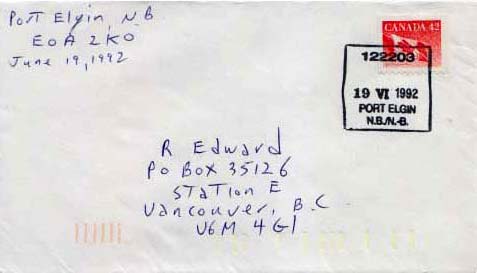 Port Elgin, N.B
E0A 2K0
June 19, 1992
CANADA 42
122203
19 VI 1992
PORT ELGIN
N.B./N.-B.
R Edward
Po Box 35126
STATION E
Vancouver, B.C.
V6M 4G1